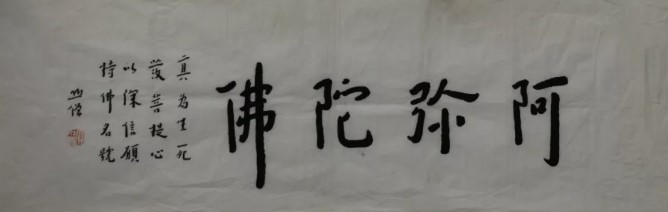 阿弥陀佛
真為生死
發菩提心
以深信願
持佛名號